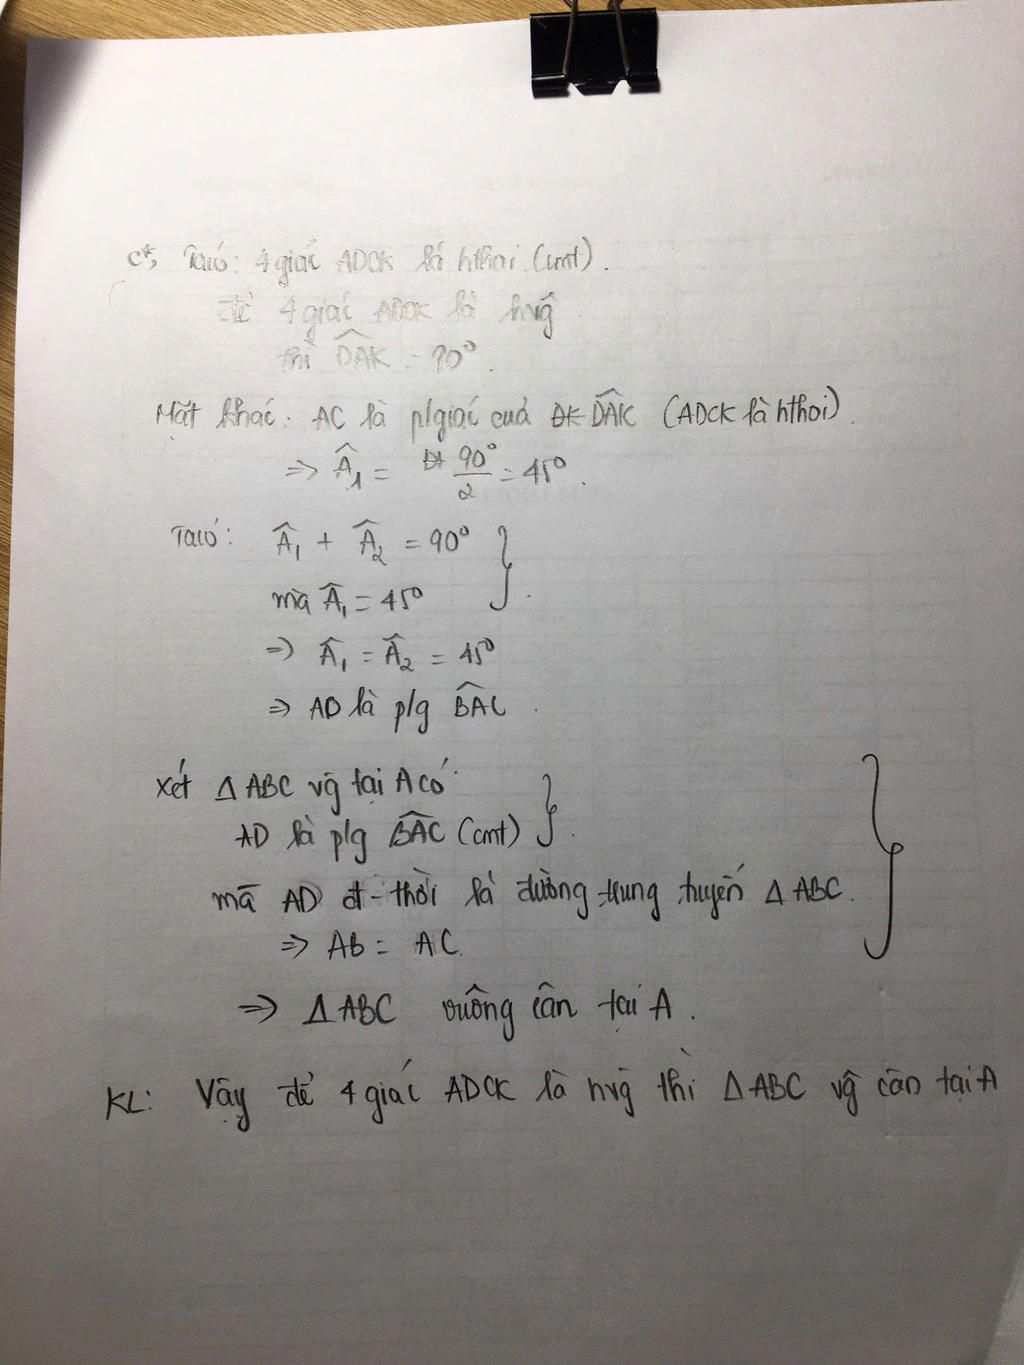 c*, Ta có: 4 giác ADCK là hthoi (cmt).
để 4 giác ADCK là hvg
thì DAK = 90°.
Mặt khác: AC là p/giác của DAK (ADCK là hthoi).
=> Â₁ = 90°/2 = 45°.
Ta có: Â₁ + Â₂ = 90°
mà Â₁ = 45° }.
=> Â₁ = Â₂ = 45°
=> AD là p/g BAC.
Xét Δ ABC vg tại A có:
AD là p/g BAC (cmt) }.
mà AD đ-thời là đường trung tuyến Δ ABC.
=> AB = AC.
=> Δ ABC vuông cân tại A.
KL: Vậy để 4 giác ADCK là hvg thì Δ ABC vg cân tại A